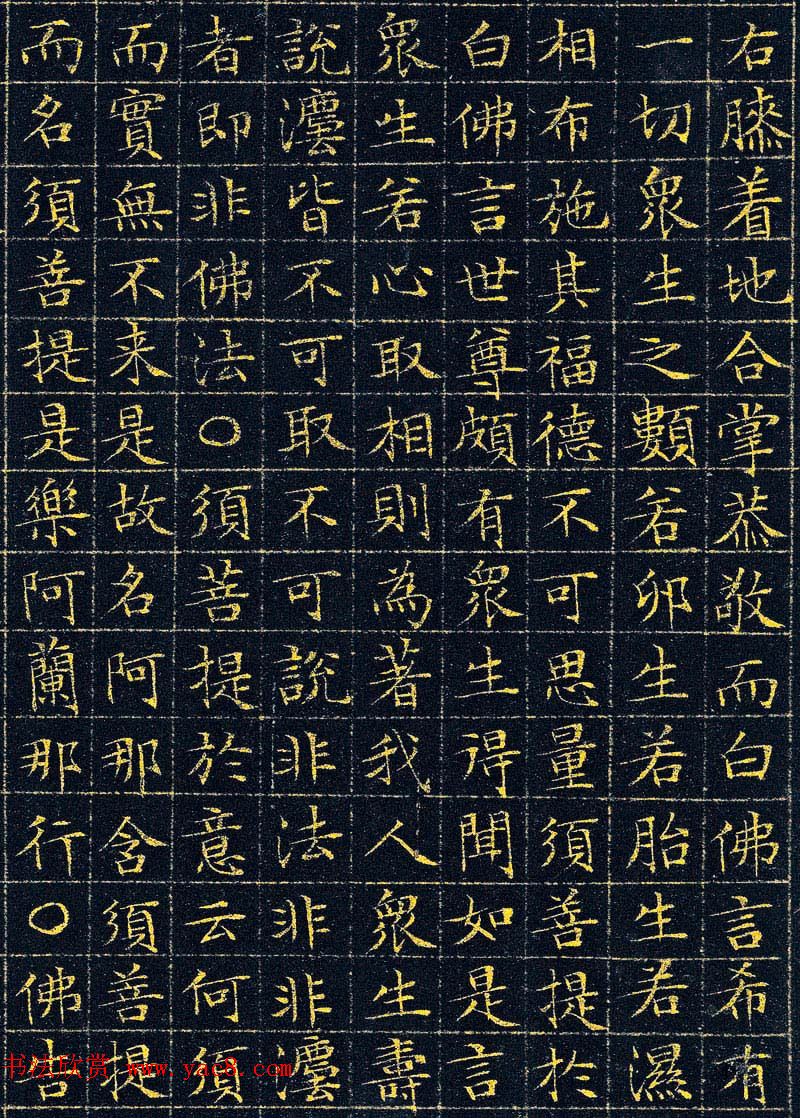 右膝着地合掌恭敬而白佛言希有
一切衆生之數若卵生若胎生若濕
相布施其福德不可思量須善提於
白佛言世尊頗有衆生得聞如是言
衆生若心取相則為著我人衆生壽
說灋皆不可取不可說非法非非灋
者即非佛法〇須菩提於意云何須
而實無不来是故名阿那含須善提
而名須善提是樂阿蘭那行〇佛告
书法欣赏 www.yac8.com